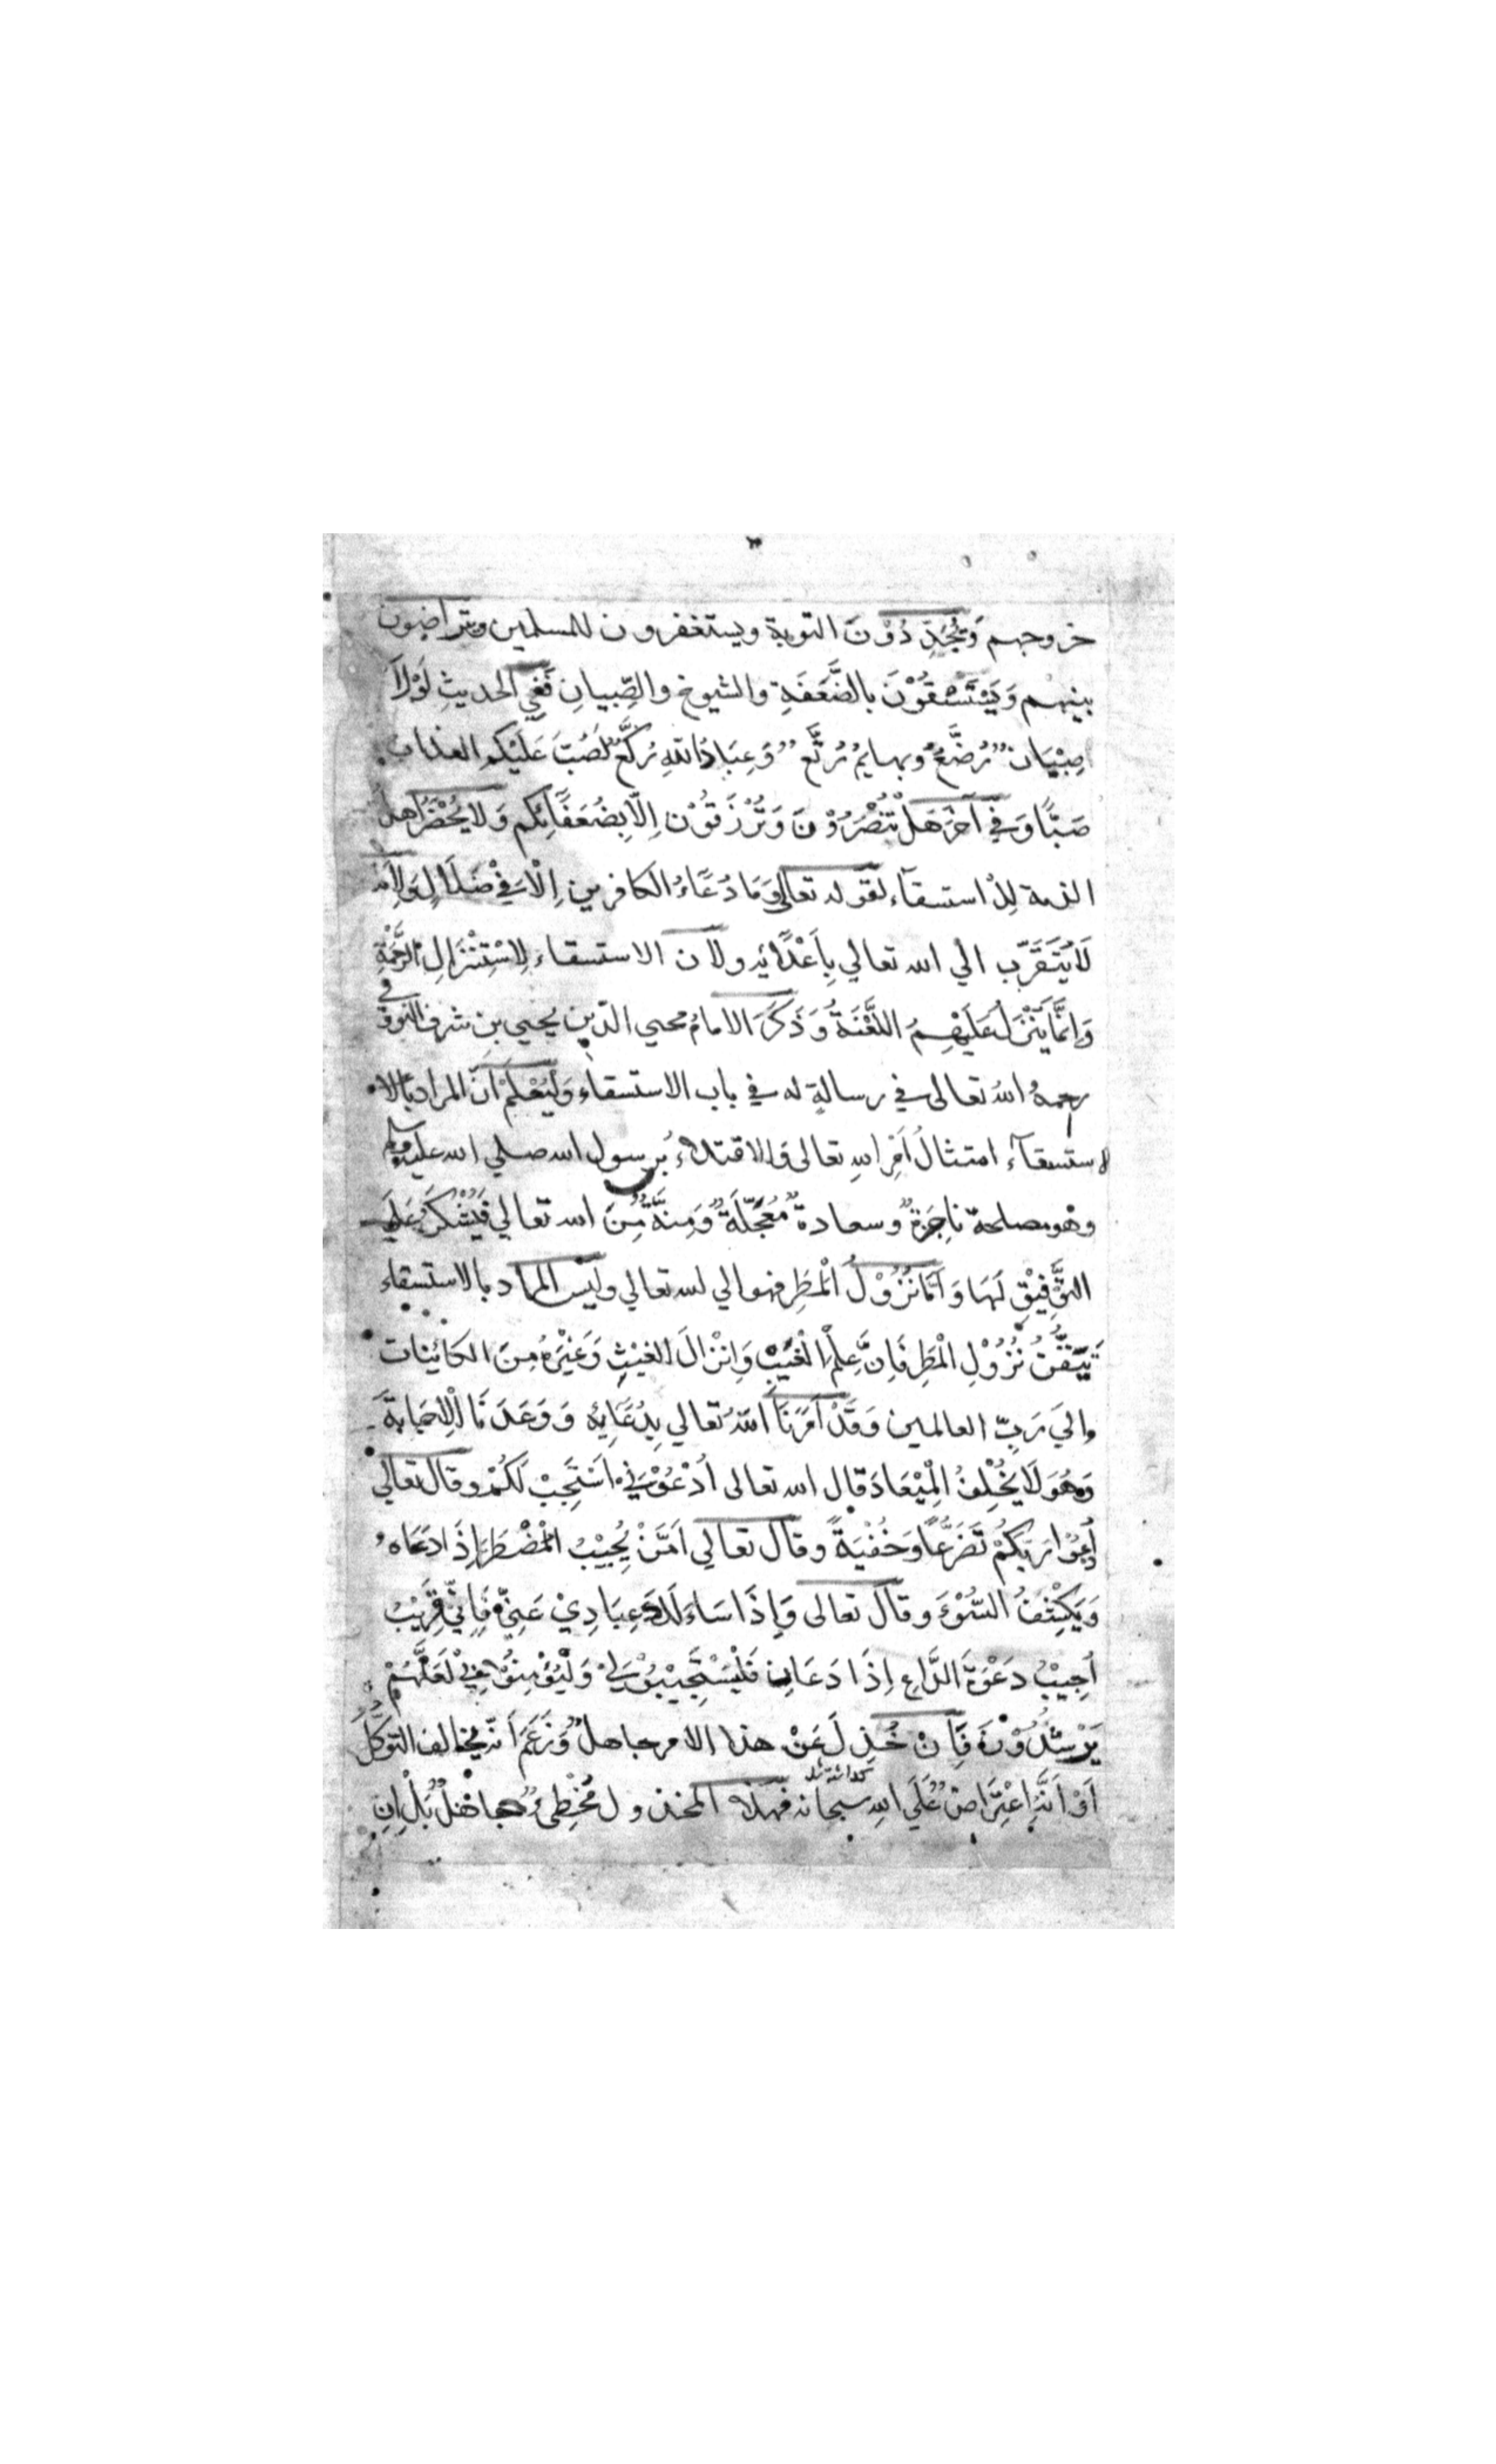 خروجهم وَيُجَدِّدُوْنَ التوبة ويستغفرون للمسلمين ويتراضون
بينهم وَيَسْتَسْقُوْنَ بالضَّعَفَةِ والشيوخ والصِّبيانِ فَفِي الحديثِ لَوْلَا
صِبْيَانٌ رُضَّعٌ وبهايمُ رُتَّعٌ وَعِبَادُ اللهِ رُكَّعٌ لَصُبَّ عَلَيْكم العذاب
صَبًّا وَفِي آخَرَ هَلْ تُنْصَرُوْنَ وَتُرْزَقُوْن اِلَّا بِضُعَفَائِكم وَلا يَحْضُرُ اهل
الذمة لِلْاستسقآء لقوله تعالى وَمَا دُعَاءُ الكافرين اِلَّا فِي ضَلَالٍ وَلِاَنَّه
لَا يُتَقَرَّب الي الله تعالي بِاَعْدَائِه ولان الاستسقاء لِاسْتِنْزَالِ الرَّحْمَةِ
وَاِنَّمَا يَنْزِلُ عَلَيْهِمُ اللَّعْنَةُ وَذَكَرَ الامامُ محيي الدّين يحيي بن شرف النووي
رحمهُ اللهُ تعالى في رسالةٍ له في باب الاستسقاء وَلْيُعْلَمْ اَنَّ المراد بالا
ستسقآء امتثالُ اَمْرِ اللهِ تعالى وَالاقتداءُ برسول الله صلي الله عليه وسلم
وهو مصلحة نَاجِزَةٌ وسعادةٌ مُعَجَّلَةٌ وَمِنَّةٌ مِنَ الله تعالي فَيُشْكَرُ عَلَي
التَّوْفِيْقِ لَهَا وَاَمَّا نُزُوْلُ الْمَطَرِ فهو الي الله تعالي وليس المراد بالاستسقاء
تَيَقُّنُ نُزُوْلِ الْمَطَرِ فَاِنَّ عِلْمَ الْغَيْبِ وَاِنْزَالَ الغيثِ وَغَيْرَهُ مِنَ الكائينات
والي رَبِّ العالمين وَقَدْ اَمَرَنَا اللهُ تعالي بِدُعَائِهِ وَوَعَدَنَا الْاِجَابَةَ
وَهُوَ لَا يُخْلِفُ الْمِيْعَادَ قال الله تعالى اُدْعُوْنِي اَسْتَجِبْ لَكُمْ وقال تعالي
اُدْعُوْا رَبَّكُمْ تَضَرُّعًا وَخُفْيَةً وقال تعالي اَمَّنْ يُجِيْبُ الْمُضْطَرَّ اِذَا دَعَاهُ
وَيَكْشِفُ السُّوْءَ وقال تعالى وَاِذَا سَاءَلَكَ عِبَادِيْ عَنِّي فَاِنِّي قَرِيْبٌ
اُجِيْبُ دَعْوَةَ الدَّاعِ اِذَا دَعَانِ فَلْيَسْتَجِيْبُوْا لِيْ وَلْيُؤْمِنُوْا بِيْ لَعَلَّهُمْ
يَرْشُدُوْنَ فَاِنْ خُذِلَ عَنْ هذا الامر جاهلٌ وَزَعَمَ اَنّه يخالف التوكّل
اَوْ اَنَّهُ اِعْتِرَاضٌ عَلَي اللهِ سبحانه فهذا المخذول مُخْطِئٌ جاهلٌ بَلْ اِنِ